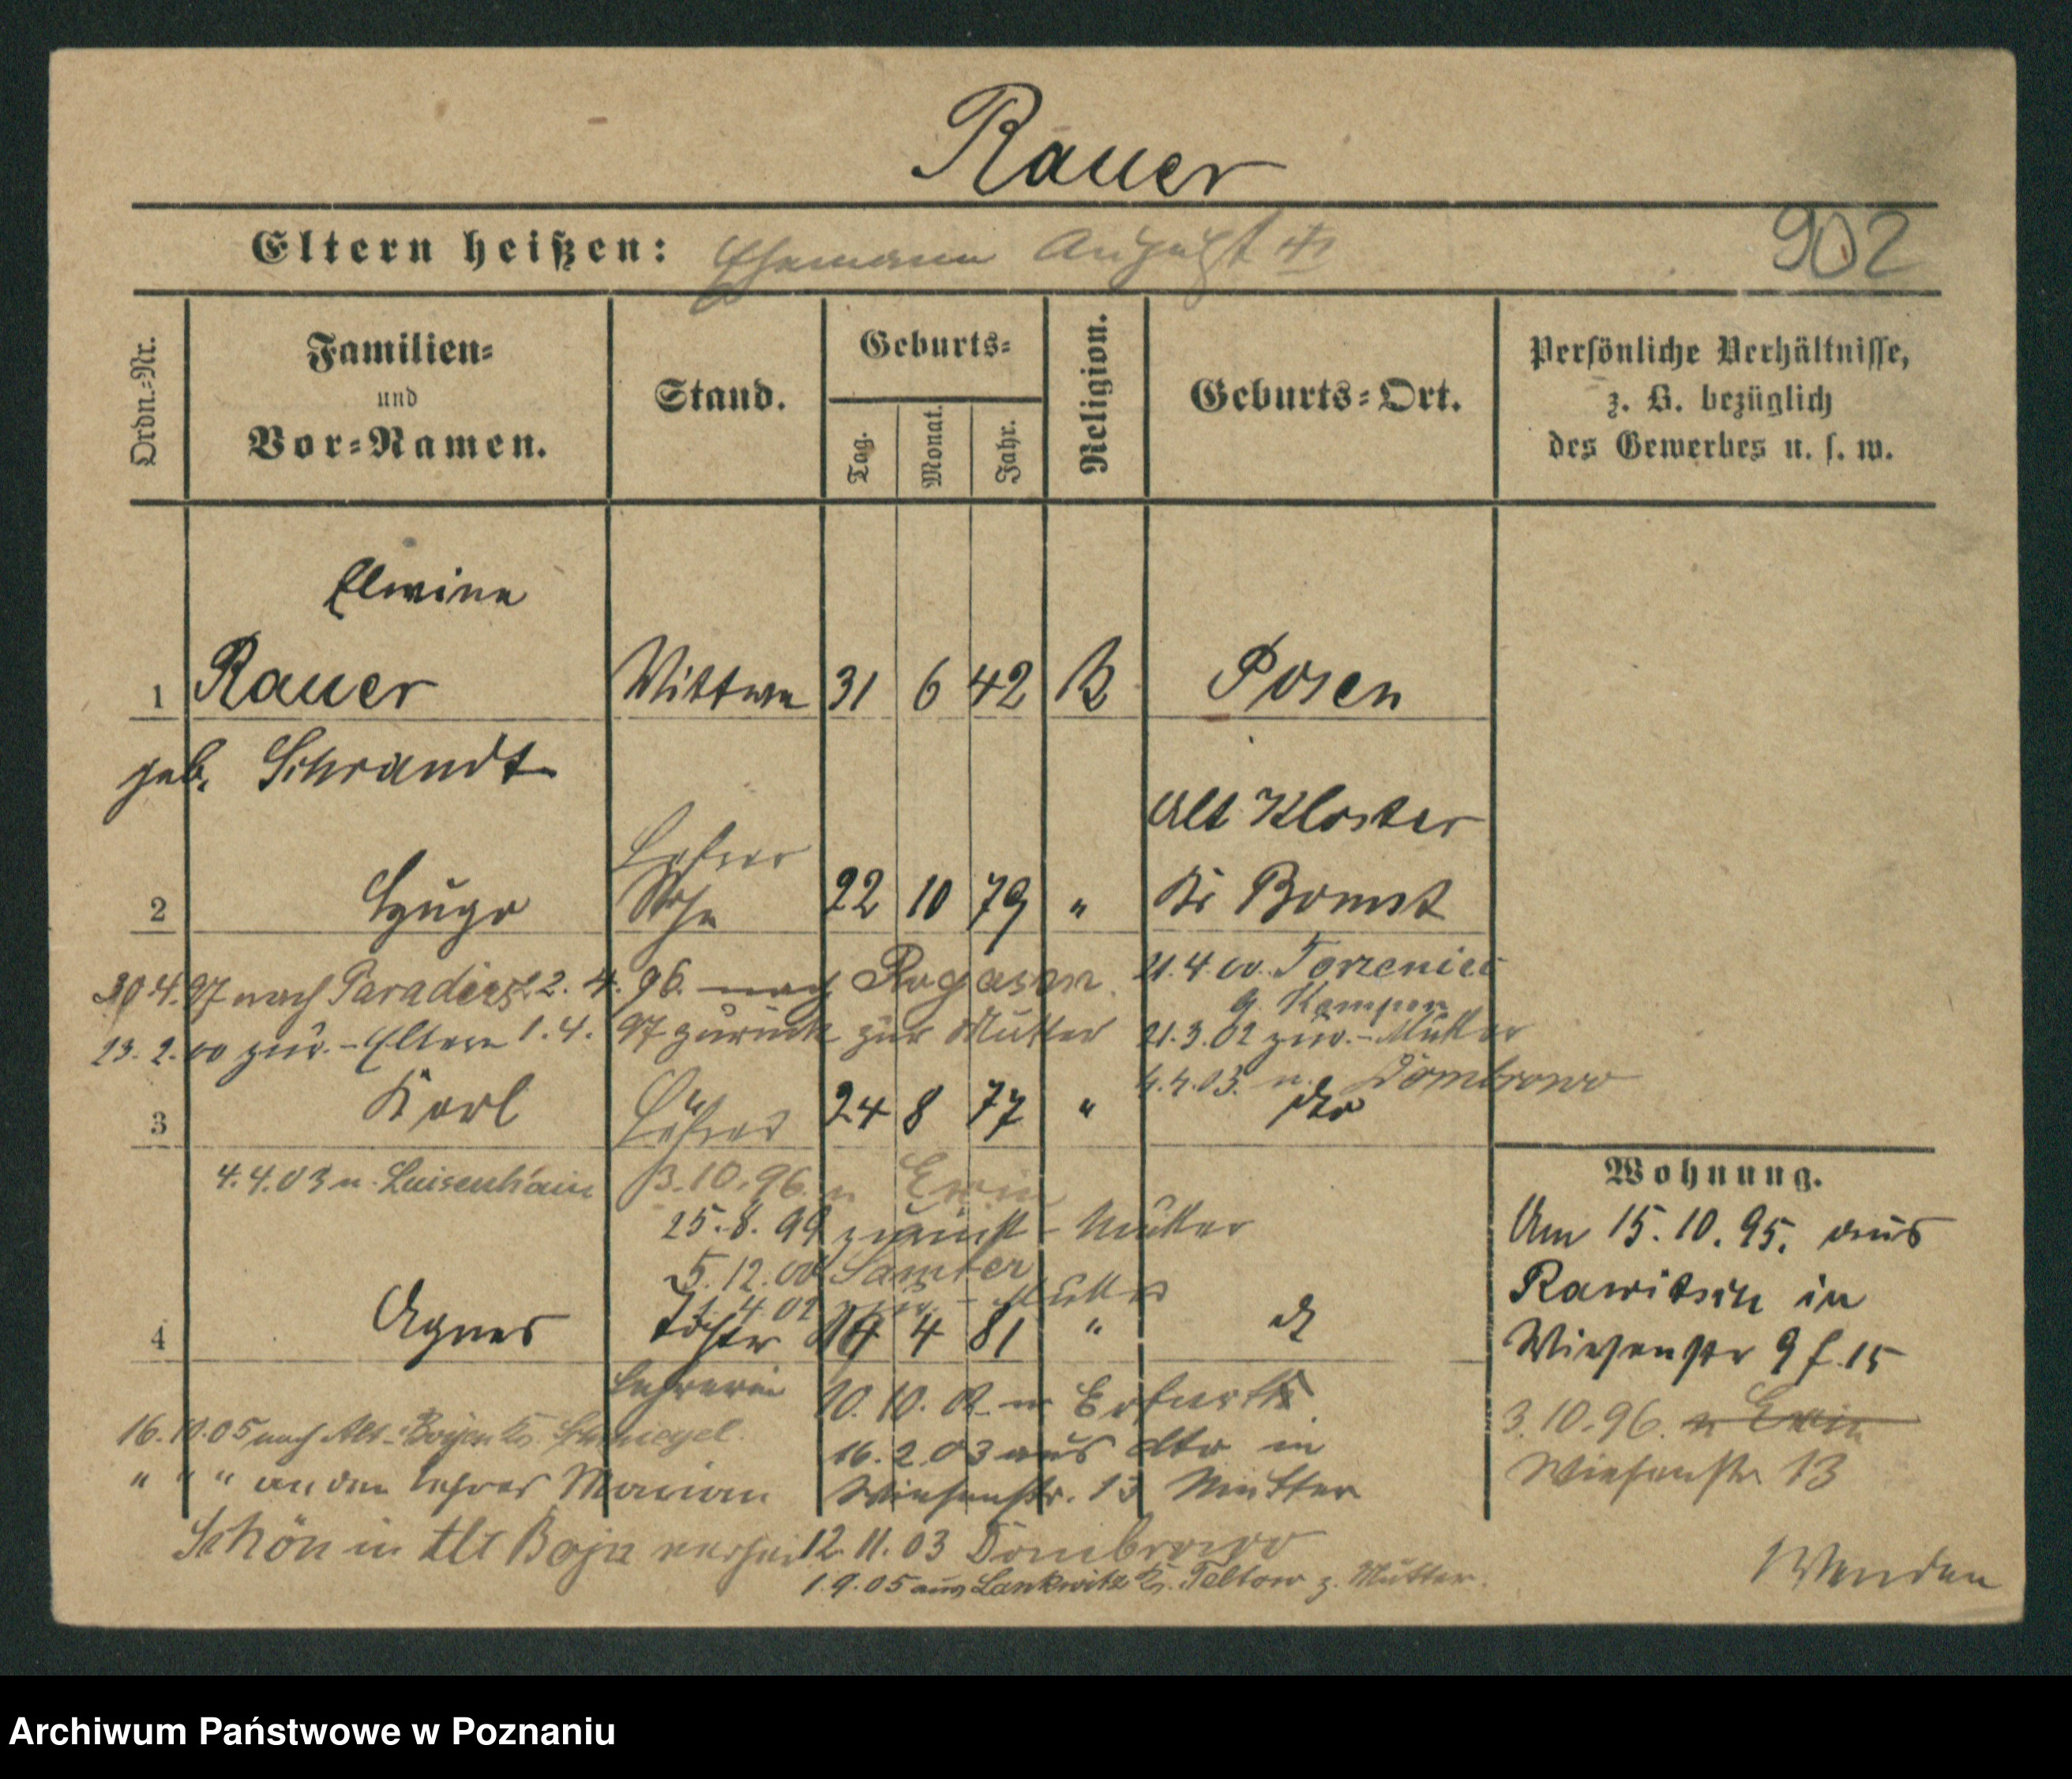 Rauer
Eltern heißen: Ehemann August 902
Ordn.-Nr.
Familien-
und
Vor-Namen.
Stand.
Geburts-
Tag.
Monat.
Jahr.
Religion.
Geburts-Ort.
Persönliche Verhältnisse,
z. B. bezüglich
des Gewerbes u. s. w.
Elwine
1 Rauer Wittwe 31 6 42 Posen
geb. Schrandt
Alt Kloster
Lehrer
2 Hugo Sohn 22 10 79 " Kr Bomst
30.4.97 nach Paradies 2. 4. 96. nach Rogasen 21.4.00.
Kempen
23.2.00 zur. - Eltern 1.4.97 zurück zur Mutter 21.3.02 zur. - Mutter
4.4.03. n. Dombrowo
3 Karl Lehrer 24 8 77 " dto
4.4.03 n. Luisenhain 3.10.96. n
25.8.99 zurück - Mutter
5.12.00 Samter
4.02 zur. - Mutter
4 Agnes Tochter 4 81 " d
Lehrerin 10.10.02 n Erfurt
16.10.05 nach Alt-Boyen Kr. Schmiegel. 16.2.03 aus dto in
" " " an den Lehrer Marian Wiesenstr. 13 Mutter
Schön in Alt Boja 12.11.03 Dombrowo
1.9.05 aus Lankwitz Kr. Teltow z. Mutter.
Wohnung.
Am 15.10.95. aus
Rawitsch in
Wiesenstr 9 f. 15
3.10.96. n
Wiesenstr 13
Wenden
Archiwum Państwowe w Poznaniu